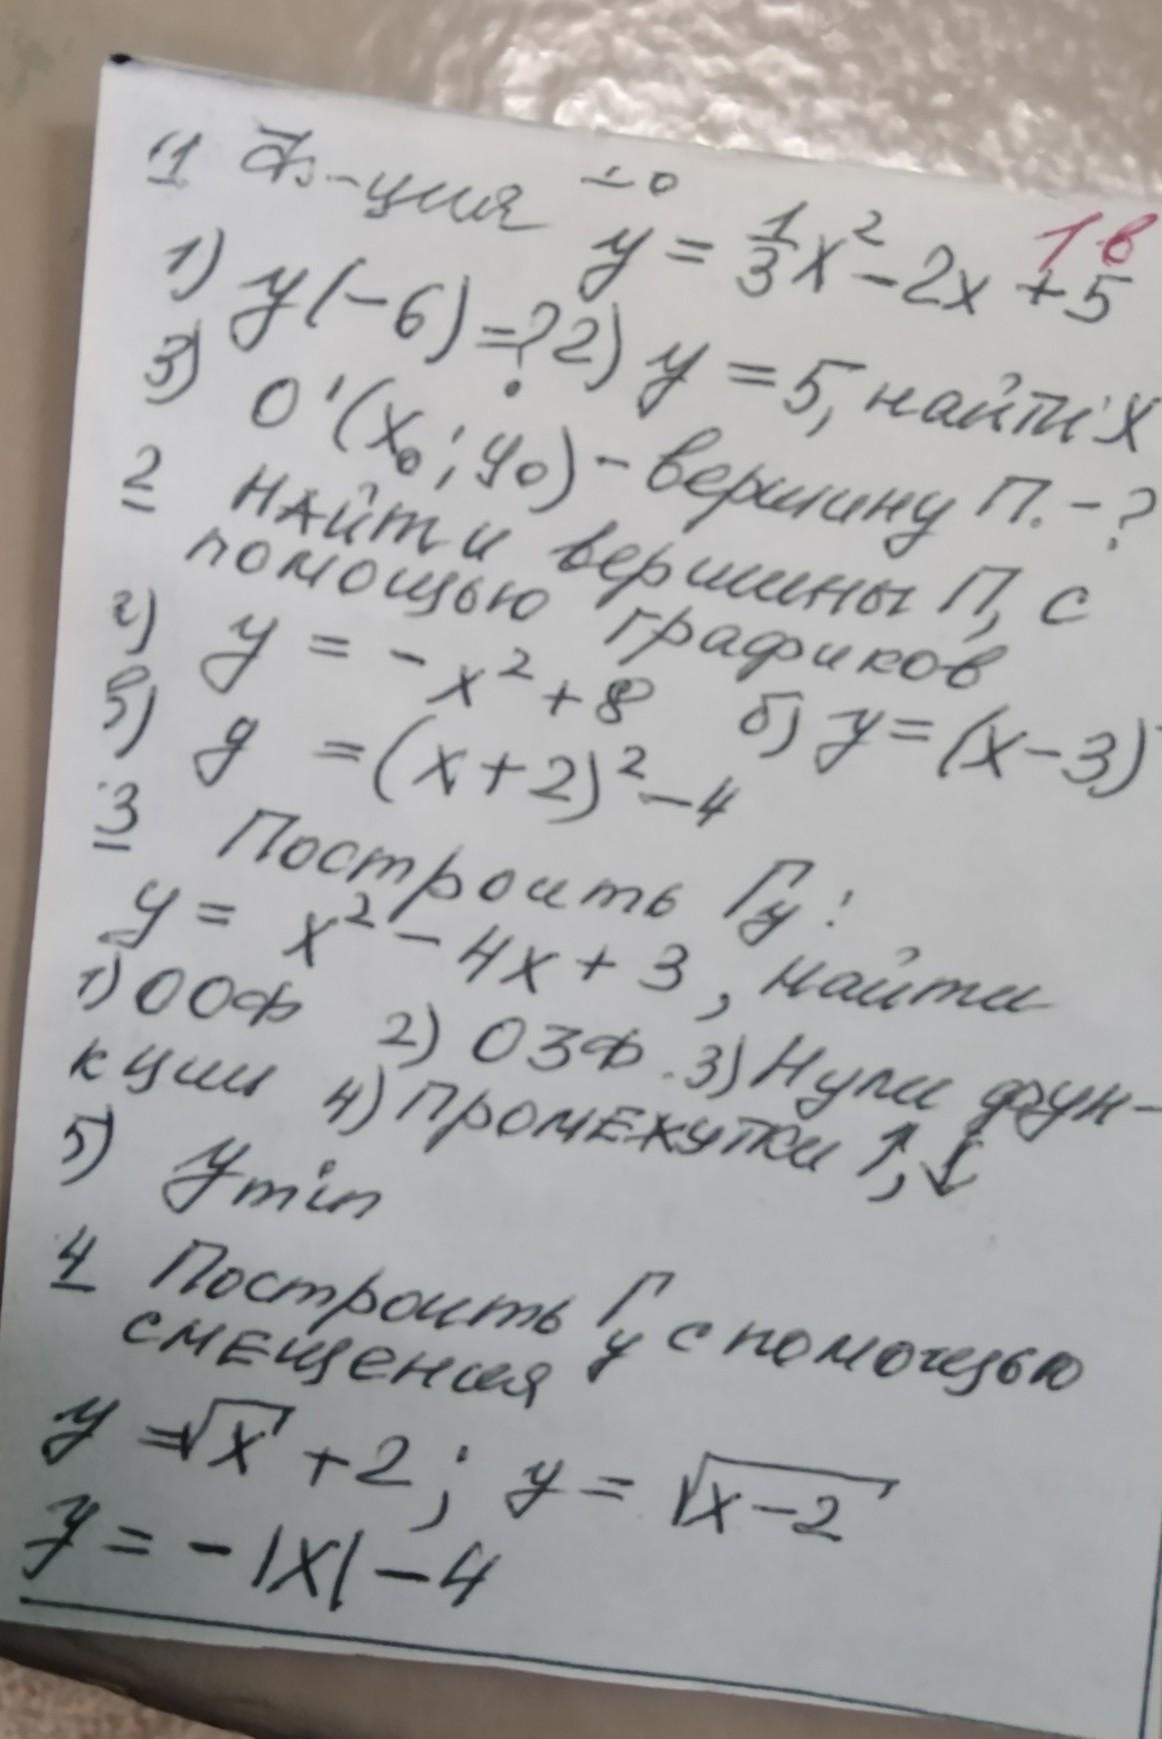 1 Ф-ция
1в
y = 1/3 x² - 2x + 5
1) y(-6) = ? 2) y = 5, найти X
3) O'(x₀; y₀) - вершину П. - ?
2 Найти вершины П, с
помощью графиков
y = -x² + 8 б) y = (x-3)
y = (x+2)² - 4
3 Построить Гy:
y = x² - 4x + 3, найти
1) ООФ 2) ОЗФ. 3) Нули фун-
кции 4) Промежутки ↑, ↓
5) y min
4 Построить Гy с помощью
смещения
y = √x + 2; y = √x-2
y = -|x| - 4